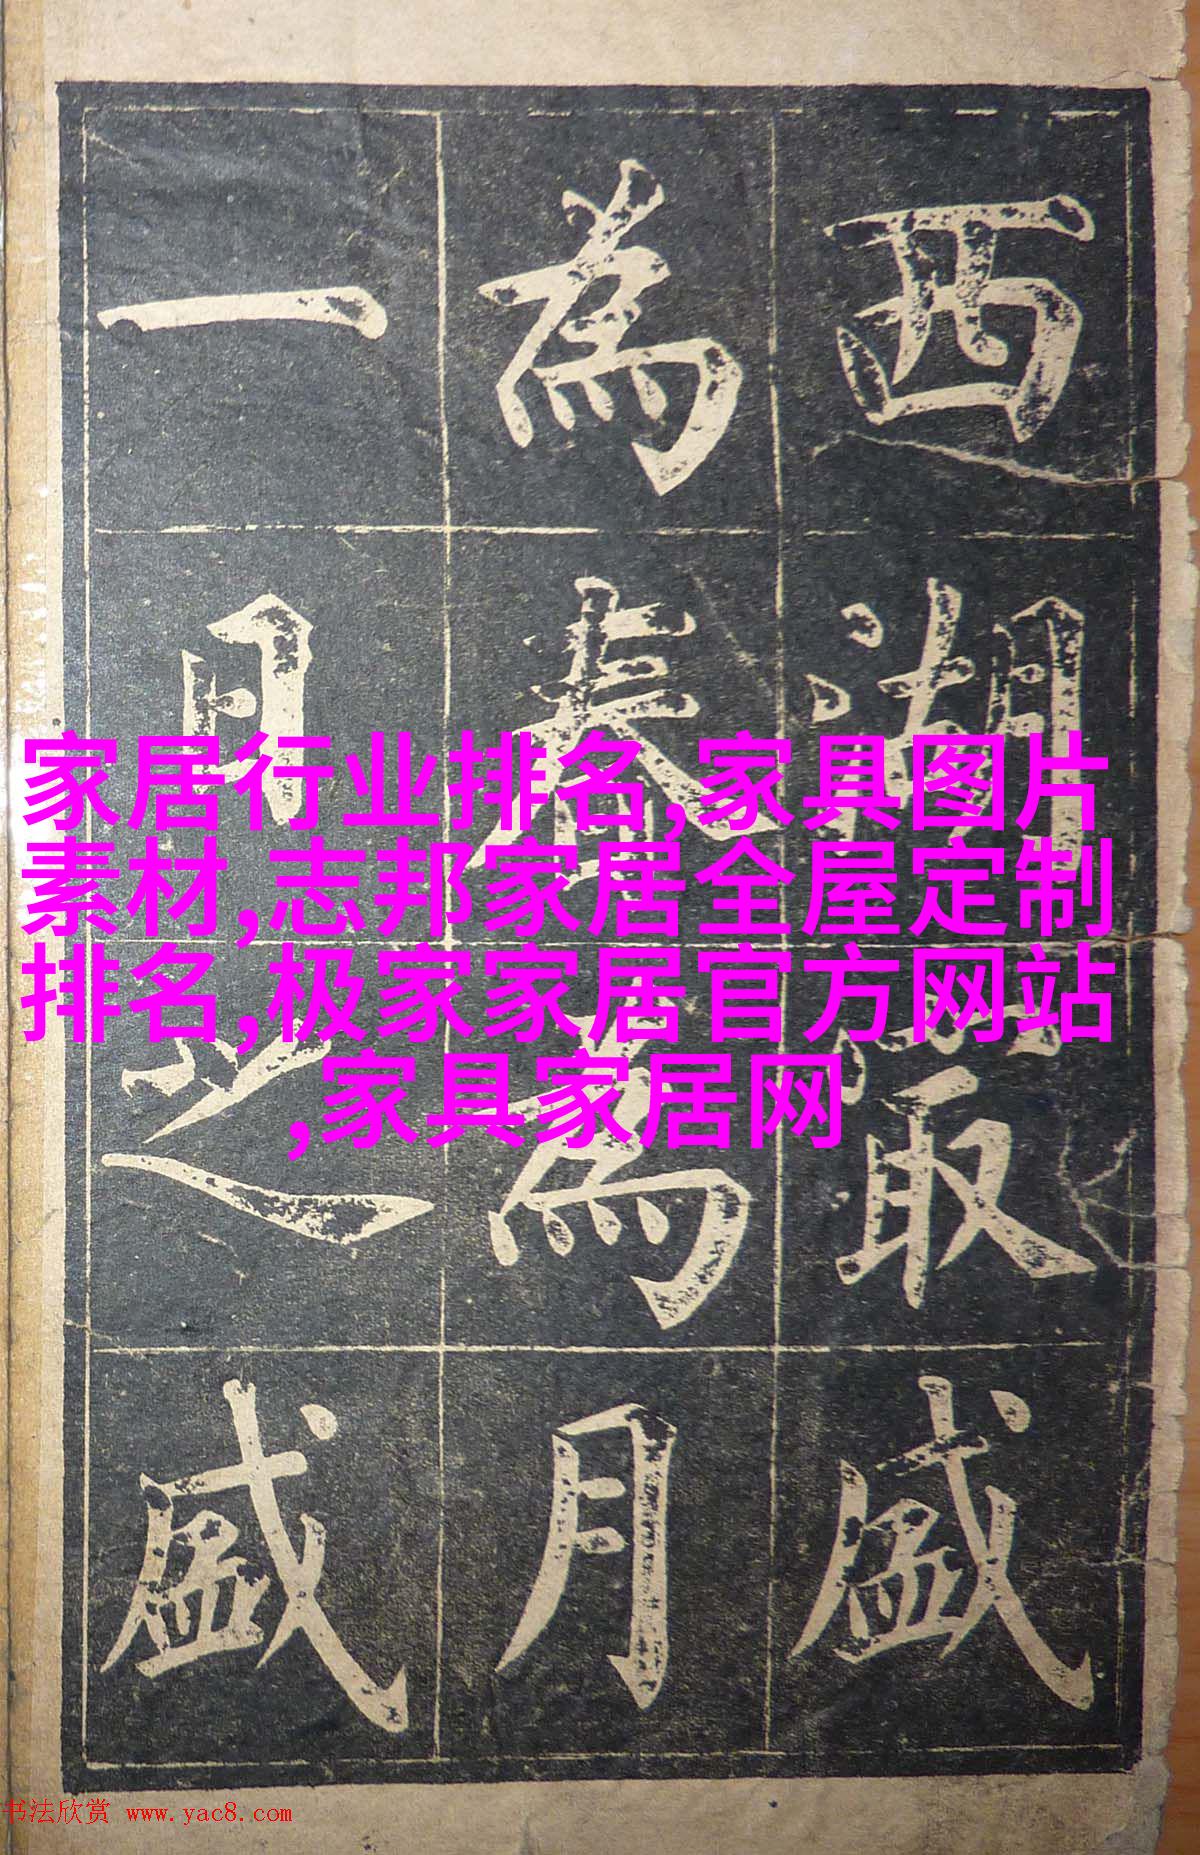 西湖最盛
為春為月
一日之盛
家居行业排名,家具图片
素材,志邦家居全屋定制
排名,极家家居官方网站
,家具家居网
书法欣赏 www.yac8.com